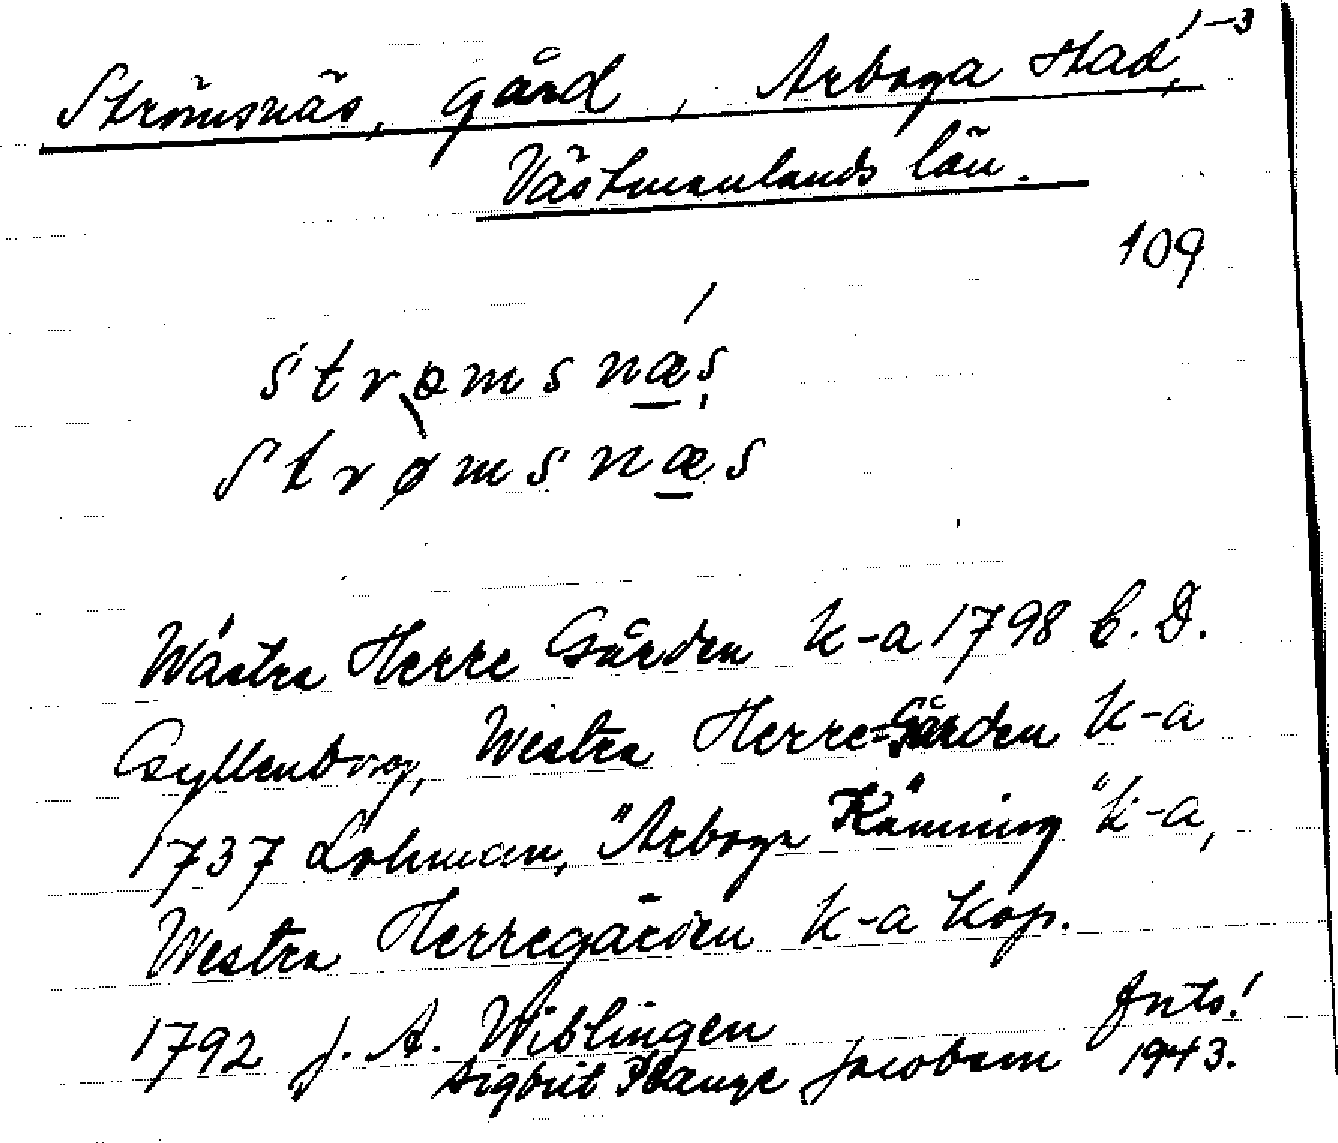 1–3
Strömsnäs, gård, Arboga stad,
Västmanlands län.
109
strømsnæs
Strømsnæs
Wästra Herre Gården k-a 1798 C. D.
Gyllenborg, Westra Herre-Gården k-a
1737 Lohman, "Arboga Känning" k-a,
Westra Herregården k-a kop.
1792 J. A. Wiblingen
Sigbrit Plænge Jacobsen 1943.